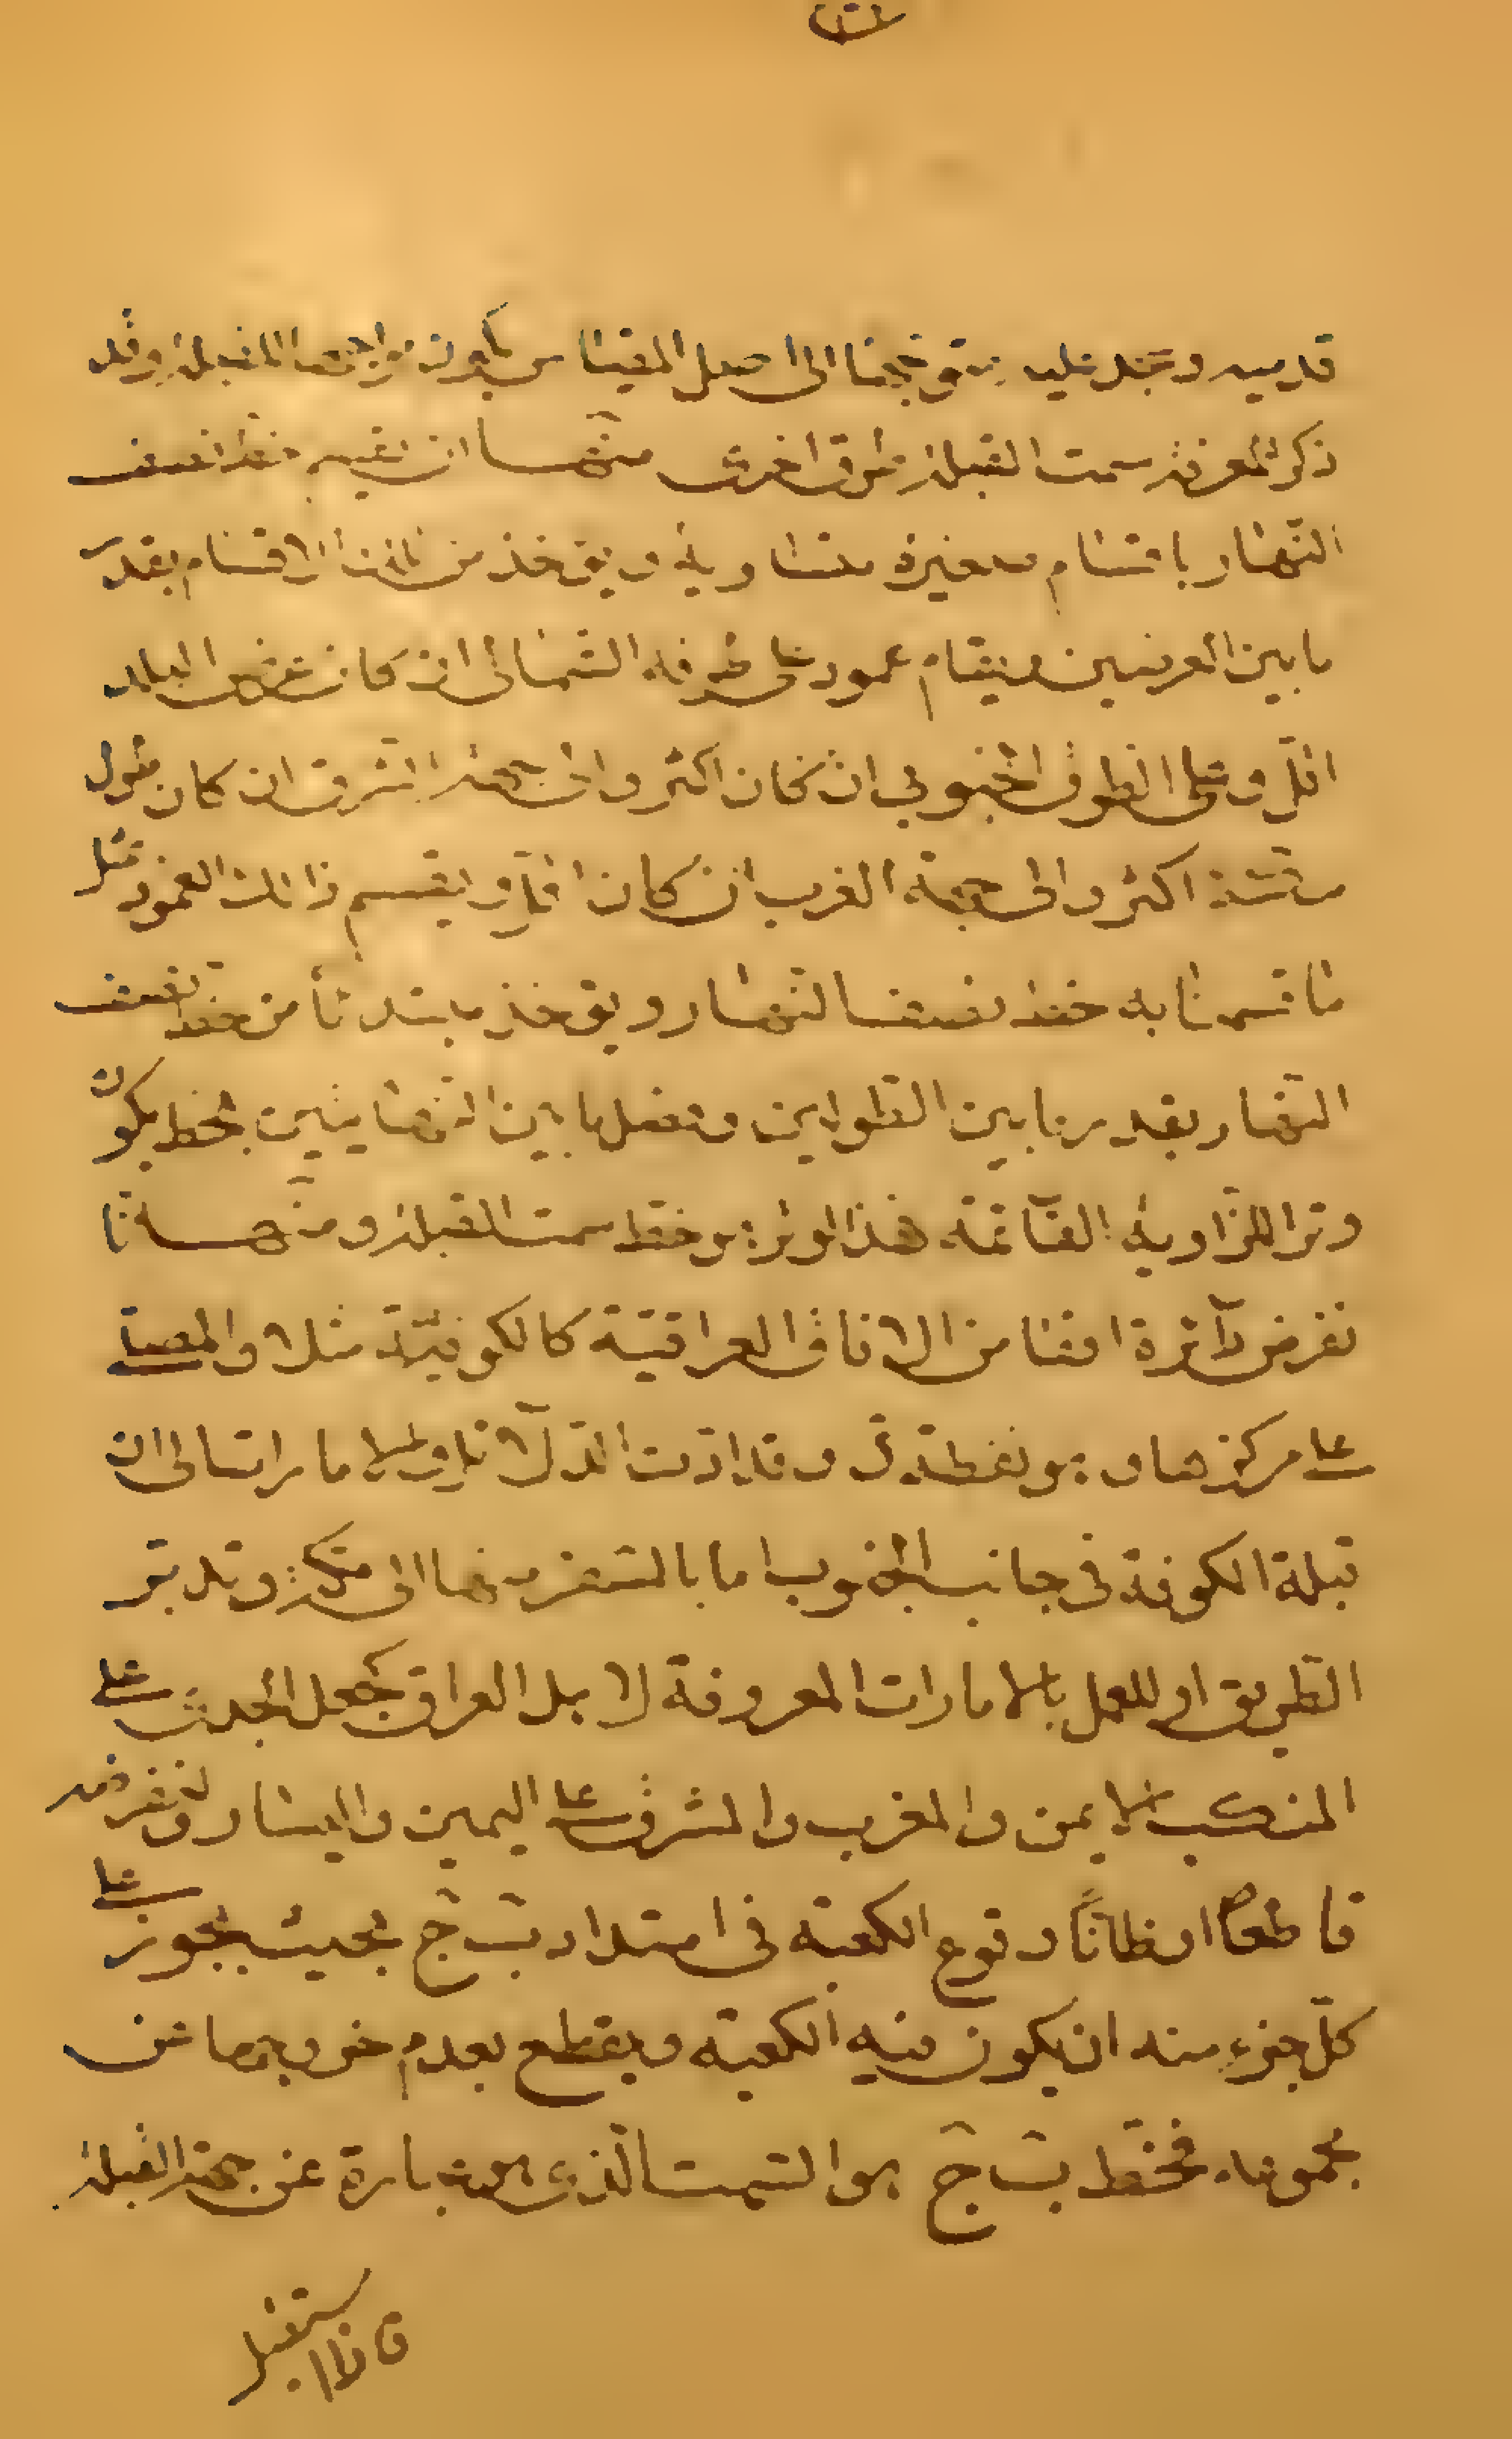 قدميه وعند عليه متوجها الى اصل المقياس يكون مواجها للقبلة وقد
ذكر لمعرفة سمت القبلة طرق اخرى منها ان يقسم خط نصف
النهار باقسام صغيرة متساوية ويؤخذ من تلك الاقسام بقدر
ما بين العرضين ويقام عمود على طرفه الشمالى ان كان عرض البلد
اقل وعلى الطرف الجنوبي ان كان اكثر والى جهة الشرق ان كان طول
مكة اكثر والى جهة الغرب ان كان اقل ويقسم ذلك العمود مثل
ما قسمنا به خط نصف النهار ويؤخذ مبتدئا من خط نصف
النهار بقدر ما بين الطولين ونصل ما بين النهايتين بخط يكون
وترا للزاوية القائمة فهذا الوتر هو خط سمت القبلة ومنها انا
نفرض دائرة افقا من الافاق العراقية كالكوفية مثلا والمصلى
على مركزها وهو نقطة وقد ادت الدلائل والامارات الى ان
قبلة الكوفة فى جانب الجنوب اما بالسفر منها الى مكة وتدبر
الطريق او للعمل بالامارات المعروفة لاهل العراق كجعل الجدى على
المنكب الايمن والمغرب والمشرق على اليمين واليسار ولنفرضه
قاطعا او ظانا وقوع الكعبة فى امتداد ب ج بحيث يجوز على
كل جزء منه ان يكون فيه الكعبة ويقطع بعدم خروجها عن
مجموعه فخط ب ج هو السمت الذى هو عبارة عن جهة القبلة
فاذا استقبل